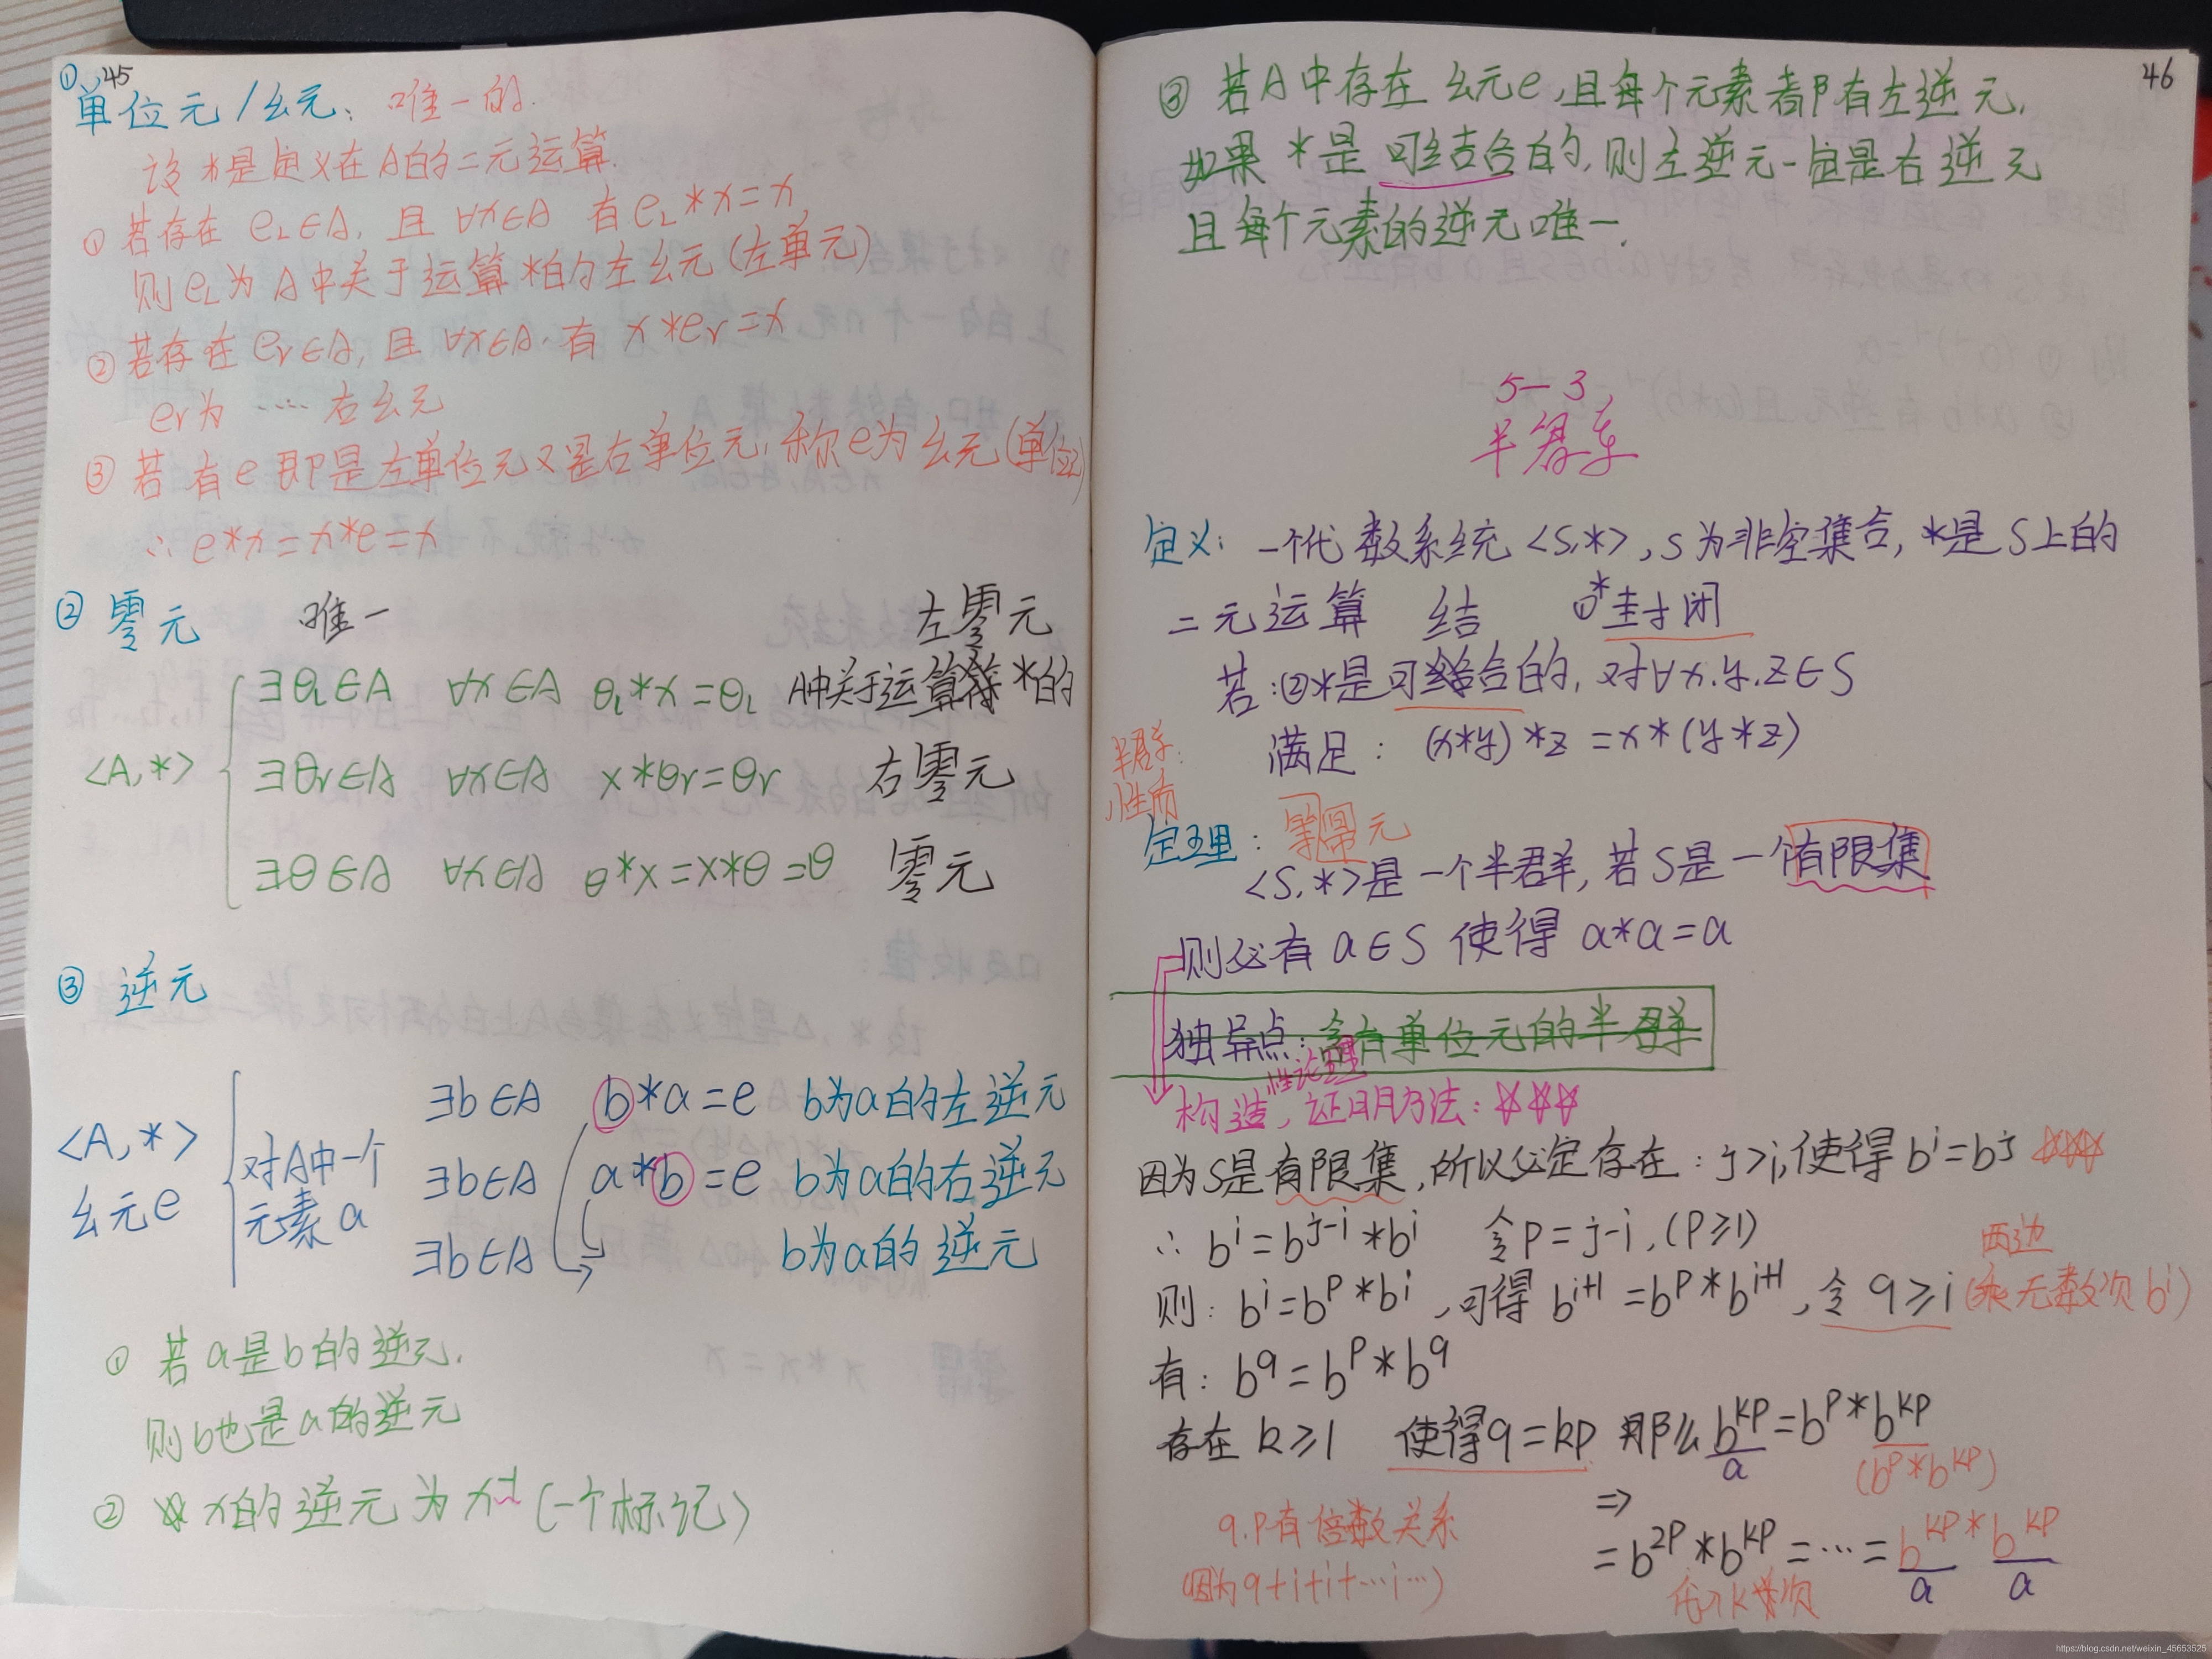 45
① 单位元/幺元: 唯一的.
设*是定义在A的二元运算.
① 若存在 eL∈A, 且 ∀x∈A 有 eL*x=x
则eL为A中关于运算*的左幺元(左单元)
② 若存在 er∈A, 且 ∀x∈A, 有 x*er=x
er为 ⋯⋯ 右幺元
③ 若有e即是左单位元又是右单位元, 称e为幺元(单位元)
∴ e*x=x*e=x
② 零元 唯一 左零元
∃θL∈A ∀x∈A θL*x=θL A中关于运算符*的
<A,*> ∃θr∈A ∀x∈A x*θr=θr 右零元
∃θ∈A ∀x∈A θ*x=x*θ=θ 零元
③ 逆元
∃b∈A b*a=e b为a的左逆元
<A,*> 对A中一个 ∃b∈A a*b=e b为a的右逆元
幺元e 元素a ∃b∈A b为a的逆元
① 若a是b的逆元.
则b也是a的逆元
② x的逆元为x⁻¹ (一个标记)
46
③ 若A中存在幺元e,且每个元素都有左逆元.
如果*是可结合的,则左逆元一定是右逆元
且每个元素的逆元唯一.
5-3,
半群
定义: 一个代数系统<S,*>,S为非空集合,*是S上的
二元运算 结 ①*封闭
若:②*是可结合的,对∀x.y.z∈S
满足: (x*y)*z=x*(y*z)
半群:
性质
定理: 等幂元
<S,*>是一个半群,若S是一个有限集
则必有a∈S 使得 a*a=a
独异点: 含有单位元的半群
构造性论, 证明方法: ☆☆☆
因为S是有限集,所以必定存在: j>i,使得bⁱ=bʲ ☆☆☆
∴ bⁱ=bʲ⁻ⁱ*bⁱ 令P=j-i,(P≥1)
则: bⁱ=bᴾ*bⁱ ,可得 bⁱ⁺¹=bᴾ*bⁱ⁺¹,令 q≥i (两边乘无数次bⁱ)
有: b^q=b^P*b^q
存在 k≥1 使得q=kp 那么 b^kp=b^P*b^kp
a (b^P*b^kp)
⇒
q.P有倍数关系 =b^2P*b^kP=⋯=b^kP*b^kP
(因为q+i+i+⋯i⋯) 代入k次 a a
https://blog.csdn.net/weixin_45653525